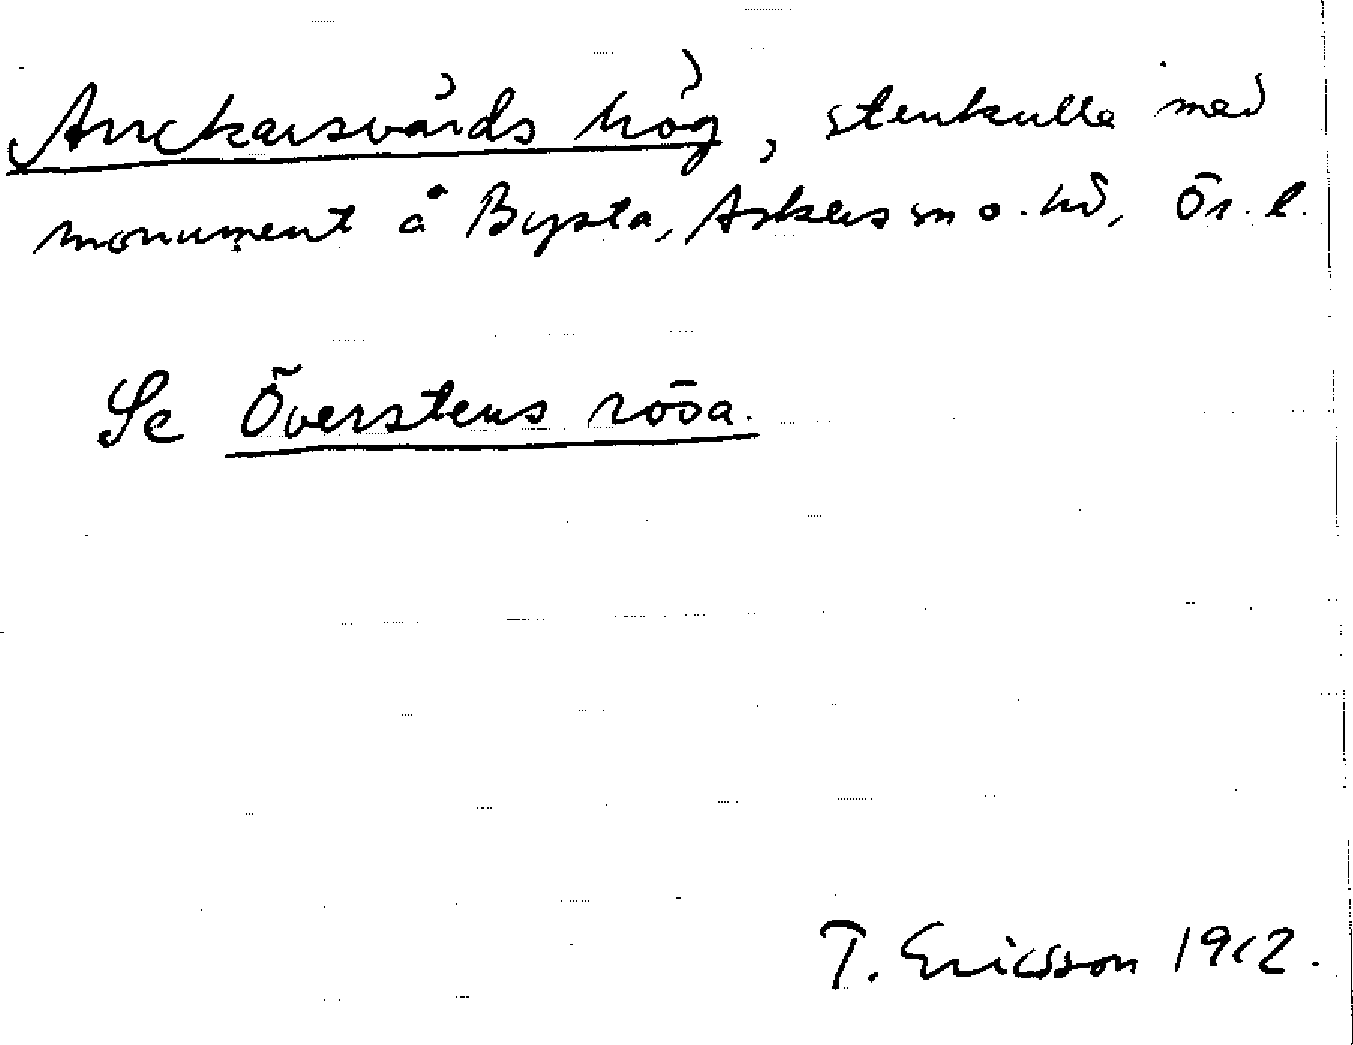 Anckarsvärds hög, stenkulla med
monument å Bysta, Askers sn o. hd, Ör. l.
Se Överstens rösa.
T. Ericsson 1912.